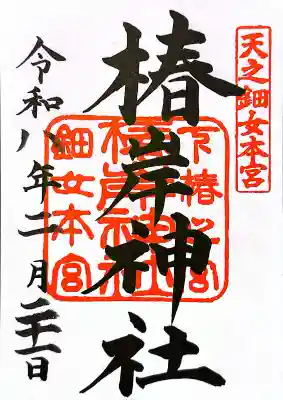 天之鈿女本宮
椿岸神社
令和八年二月二十一日
椿岸神社
鈿女本宮